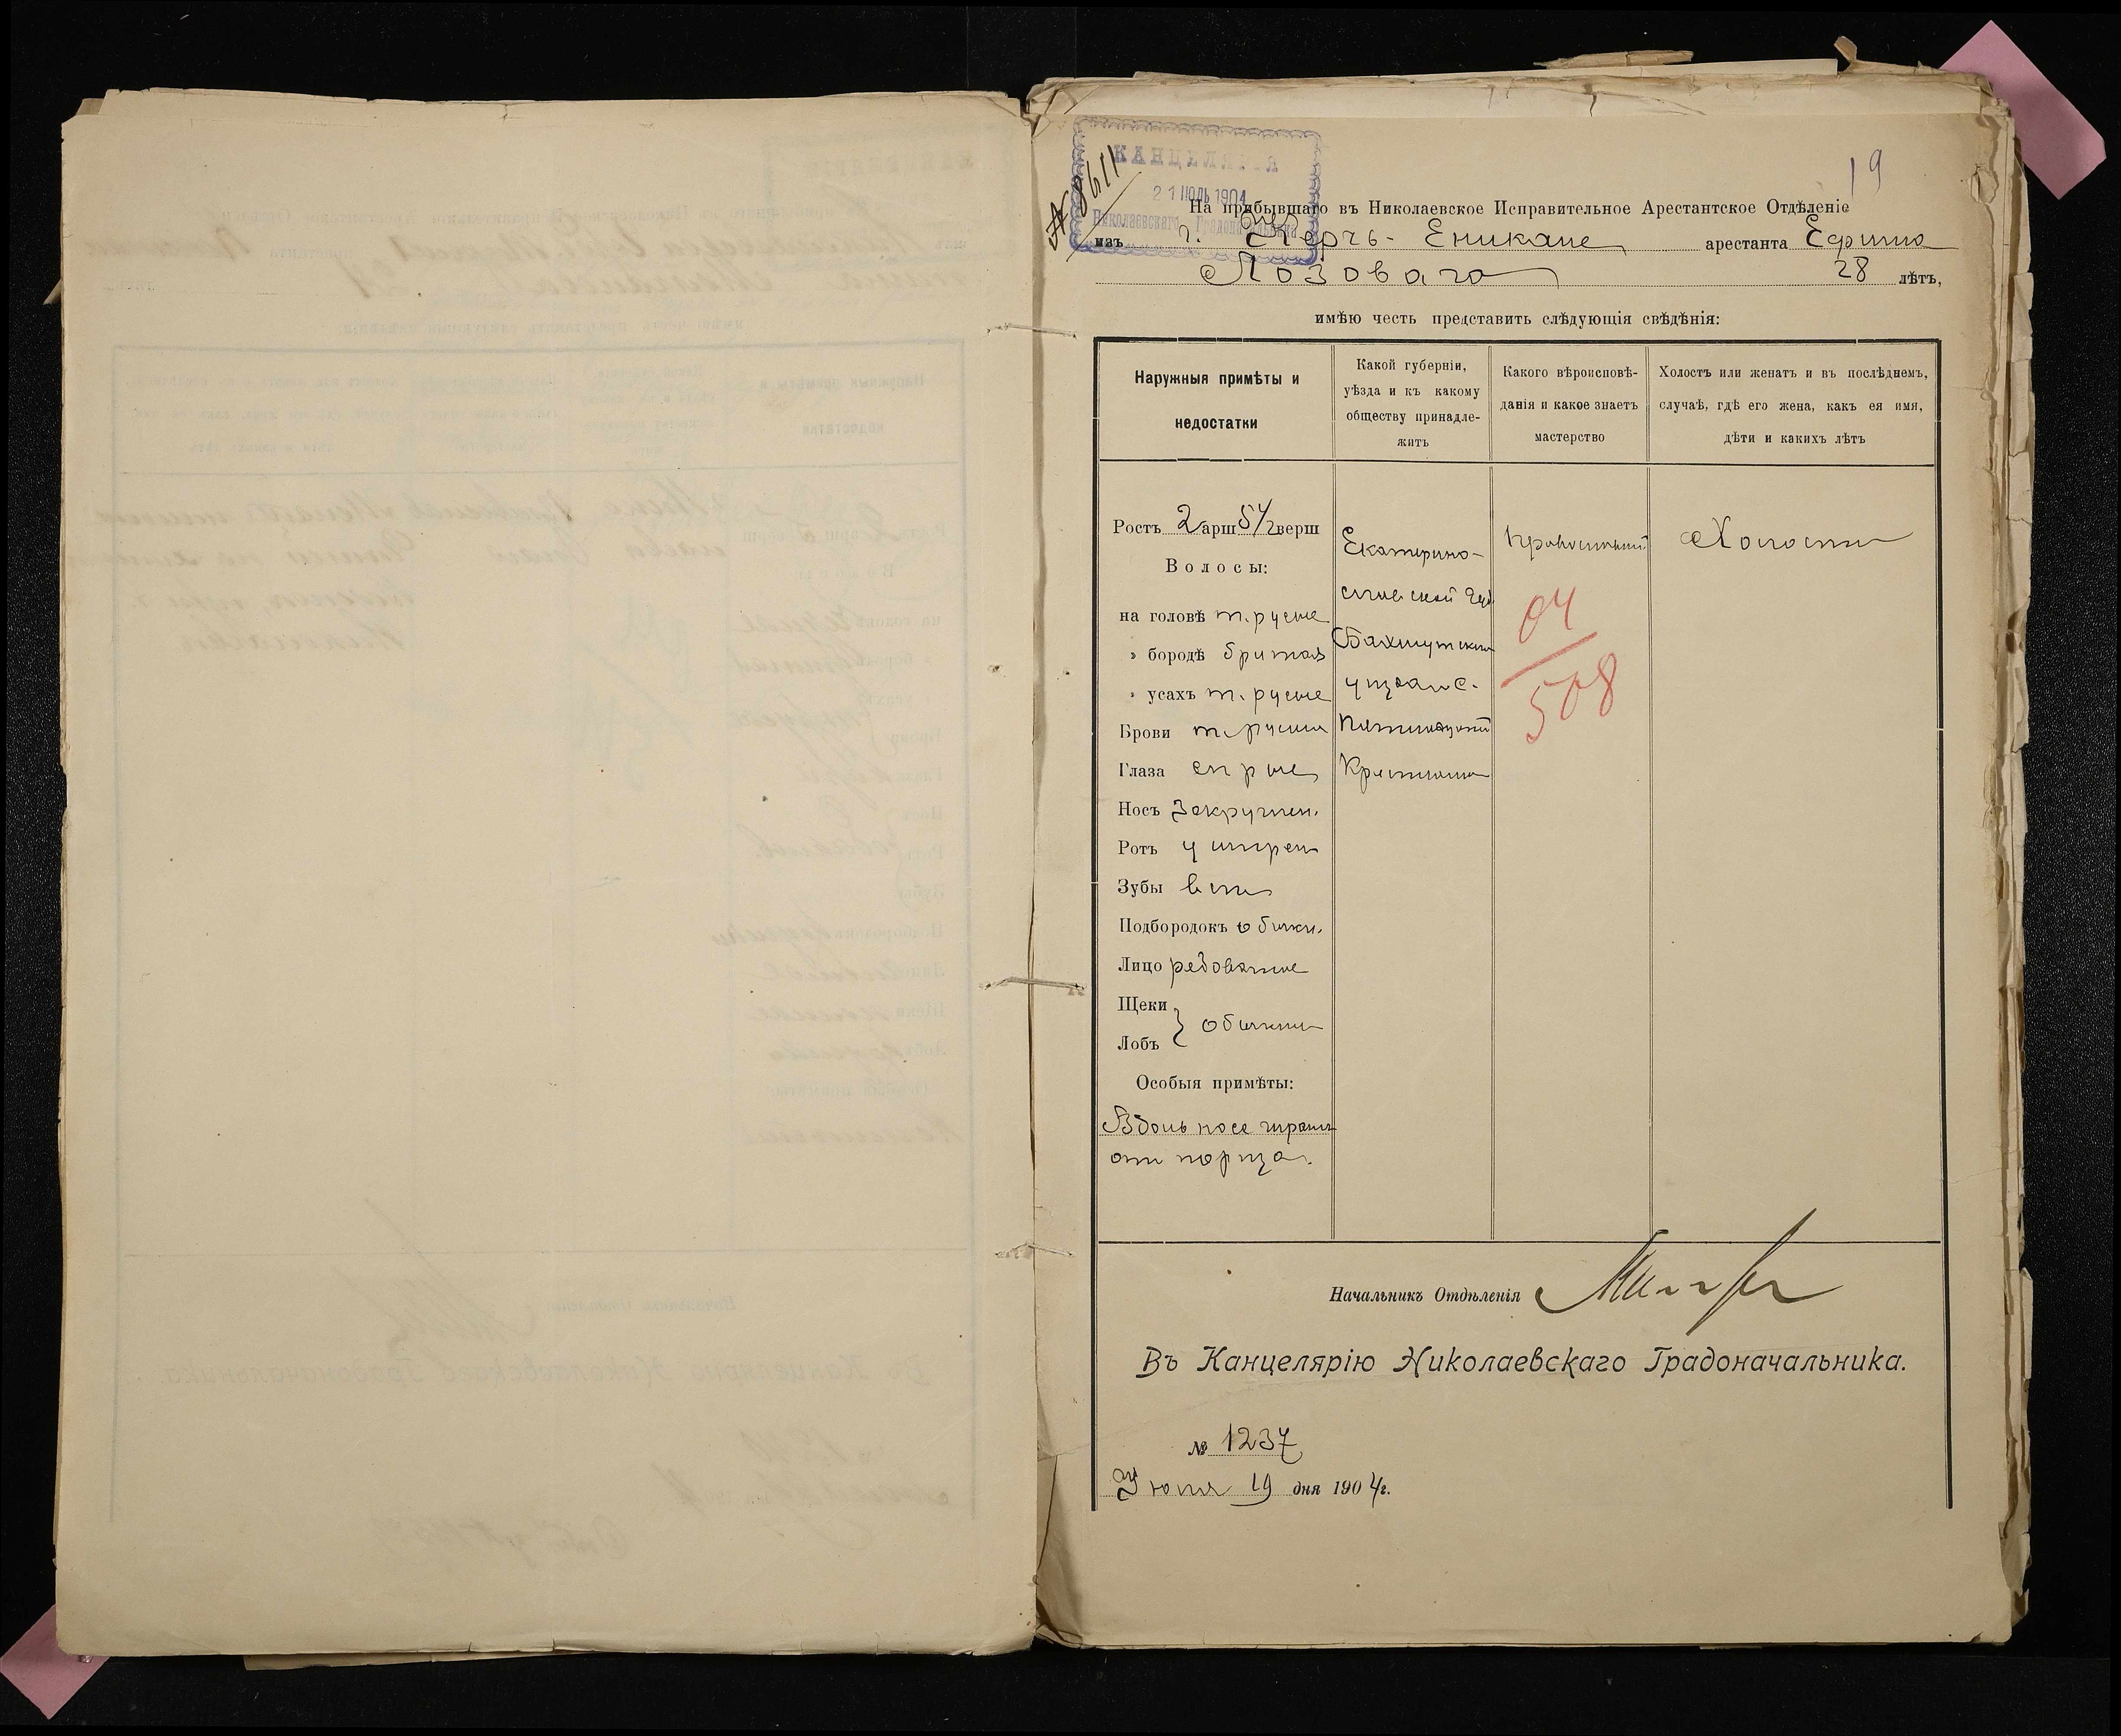 19
№ 8611
КАНЦЕЛЯРІЯ
21 ІЮЛЬ 1904
Николаевскаго Градоначальника
На прибывшаго въ Николаевское Исправительное Арестантское Отдѣленіе
изъ г. Керчь-Еникале арестанта Ефима
Лозоваго 28 лѣтъ,
имѣю честь представить слѣдующія свѣдѣнія:
Наружныя примѣты и
недостатки
Какой губерніи,
уѣзда и къ какому
обществу принадле-
житъ
Какого вѣроисповѣ-
данія и какое знаетъ
мастерство
Холостъ или женатъ и въ послѣднемъ,
случаѣ, гдѣ его жена, какъ ея имя,
дѣти и какихъ лѣтъ
Ростъ 2 арш 5 1/2 верш
Волосы:
на головѣ т. русые
" бородѣ бритая
" усахъ т. русые
Брови т. русыя
Глаза сѣрые
Носъ
Ротъ умѣрен
Зубы всѣ
Подбородокъ обыкн.
Лицо рябоватое
Щеки
Лобъ } обыкн
Особыя примѣты:
Вдоль носа шрамъ
отъ порѣза.
Екатерино-
славской губ
Бахмутскаго
уѣзда с.
Крестьян
Православный
Холостъ
04
508
Начальникъ Отдѣленія
Въ Канцелярію Николаевскаго Градоначальника.
№ 1237
Іюля 19 дня 1904 г.